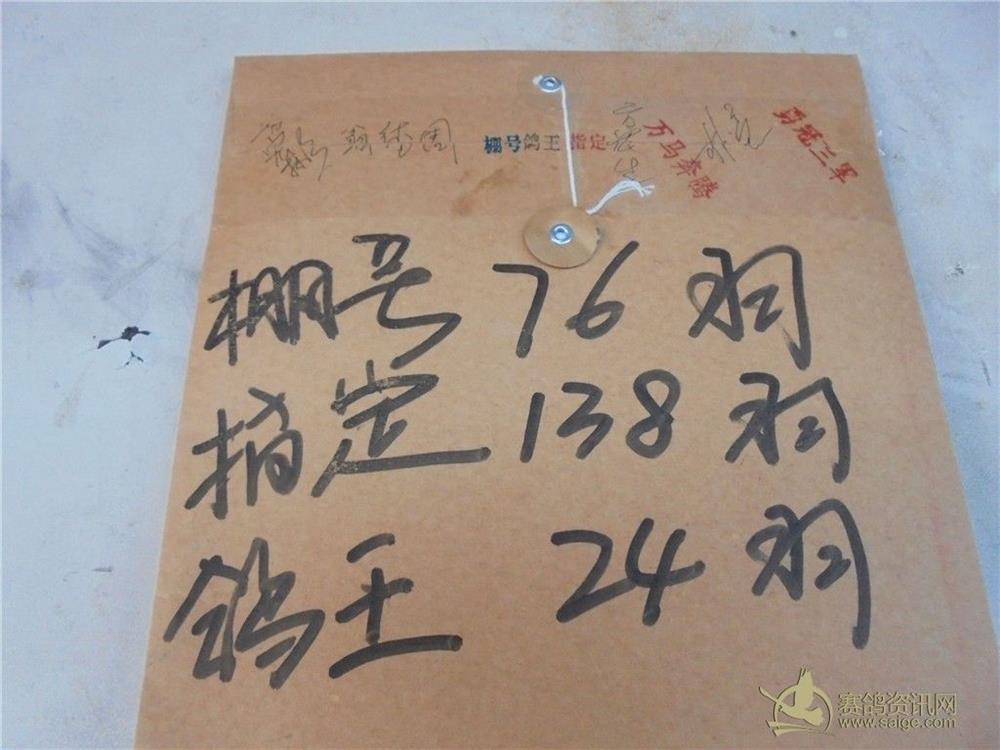 棚号鸽王指定
万马奔腾
勇冠三军
棚号 76 羽
指定 138 羽
鸽王 24 羽
赛鸽资讯网
www.saigc.com